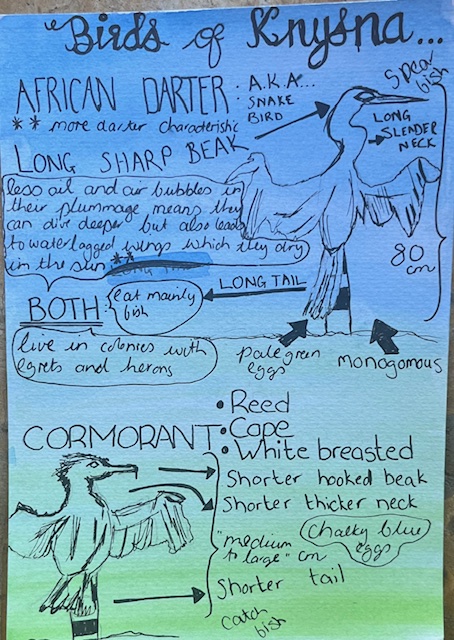 Birds of Knysna...
AFRICAN DARTER • A.K.A...
SNAKE
BIRD
** more darter characteristic
Spear
fish
LONG
SLENDER
NECK
LONG SHARP BEAK
less oil and air bubbles in
their plummage means they
can dive deeper but also leads
to waterlogged wings which they dry
in the sun **
80
cm
LONG TAIL
BOTH:
eat mainly
fish
live in colonies with
egrets and herons
pale green
eggs
monogomous
CORMORANT
• Reed
• Cape
• White breasted
Shorter hooked beak
Shorter thicker neck
"medium
to large" cm
Chalky blue
eggs
Shorter tail
catch
fish